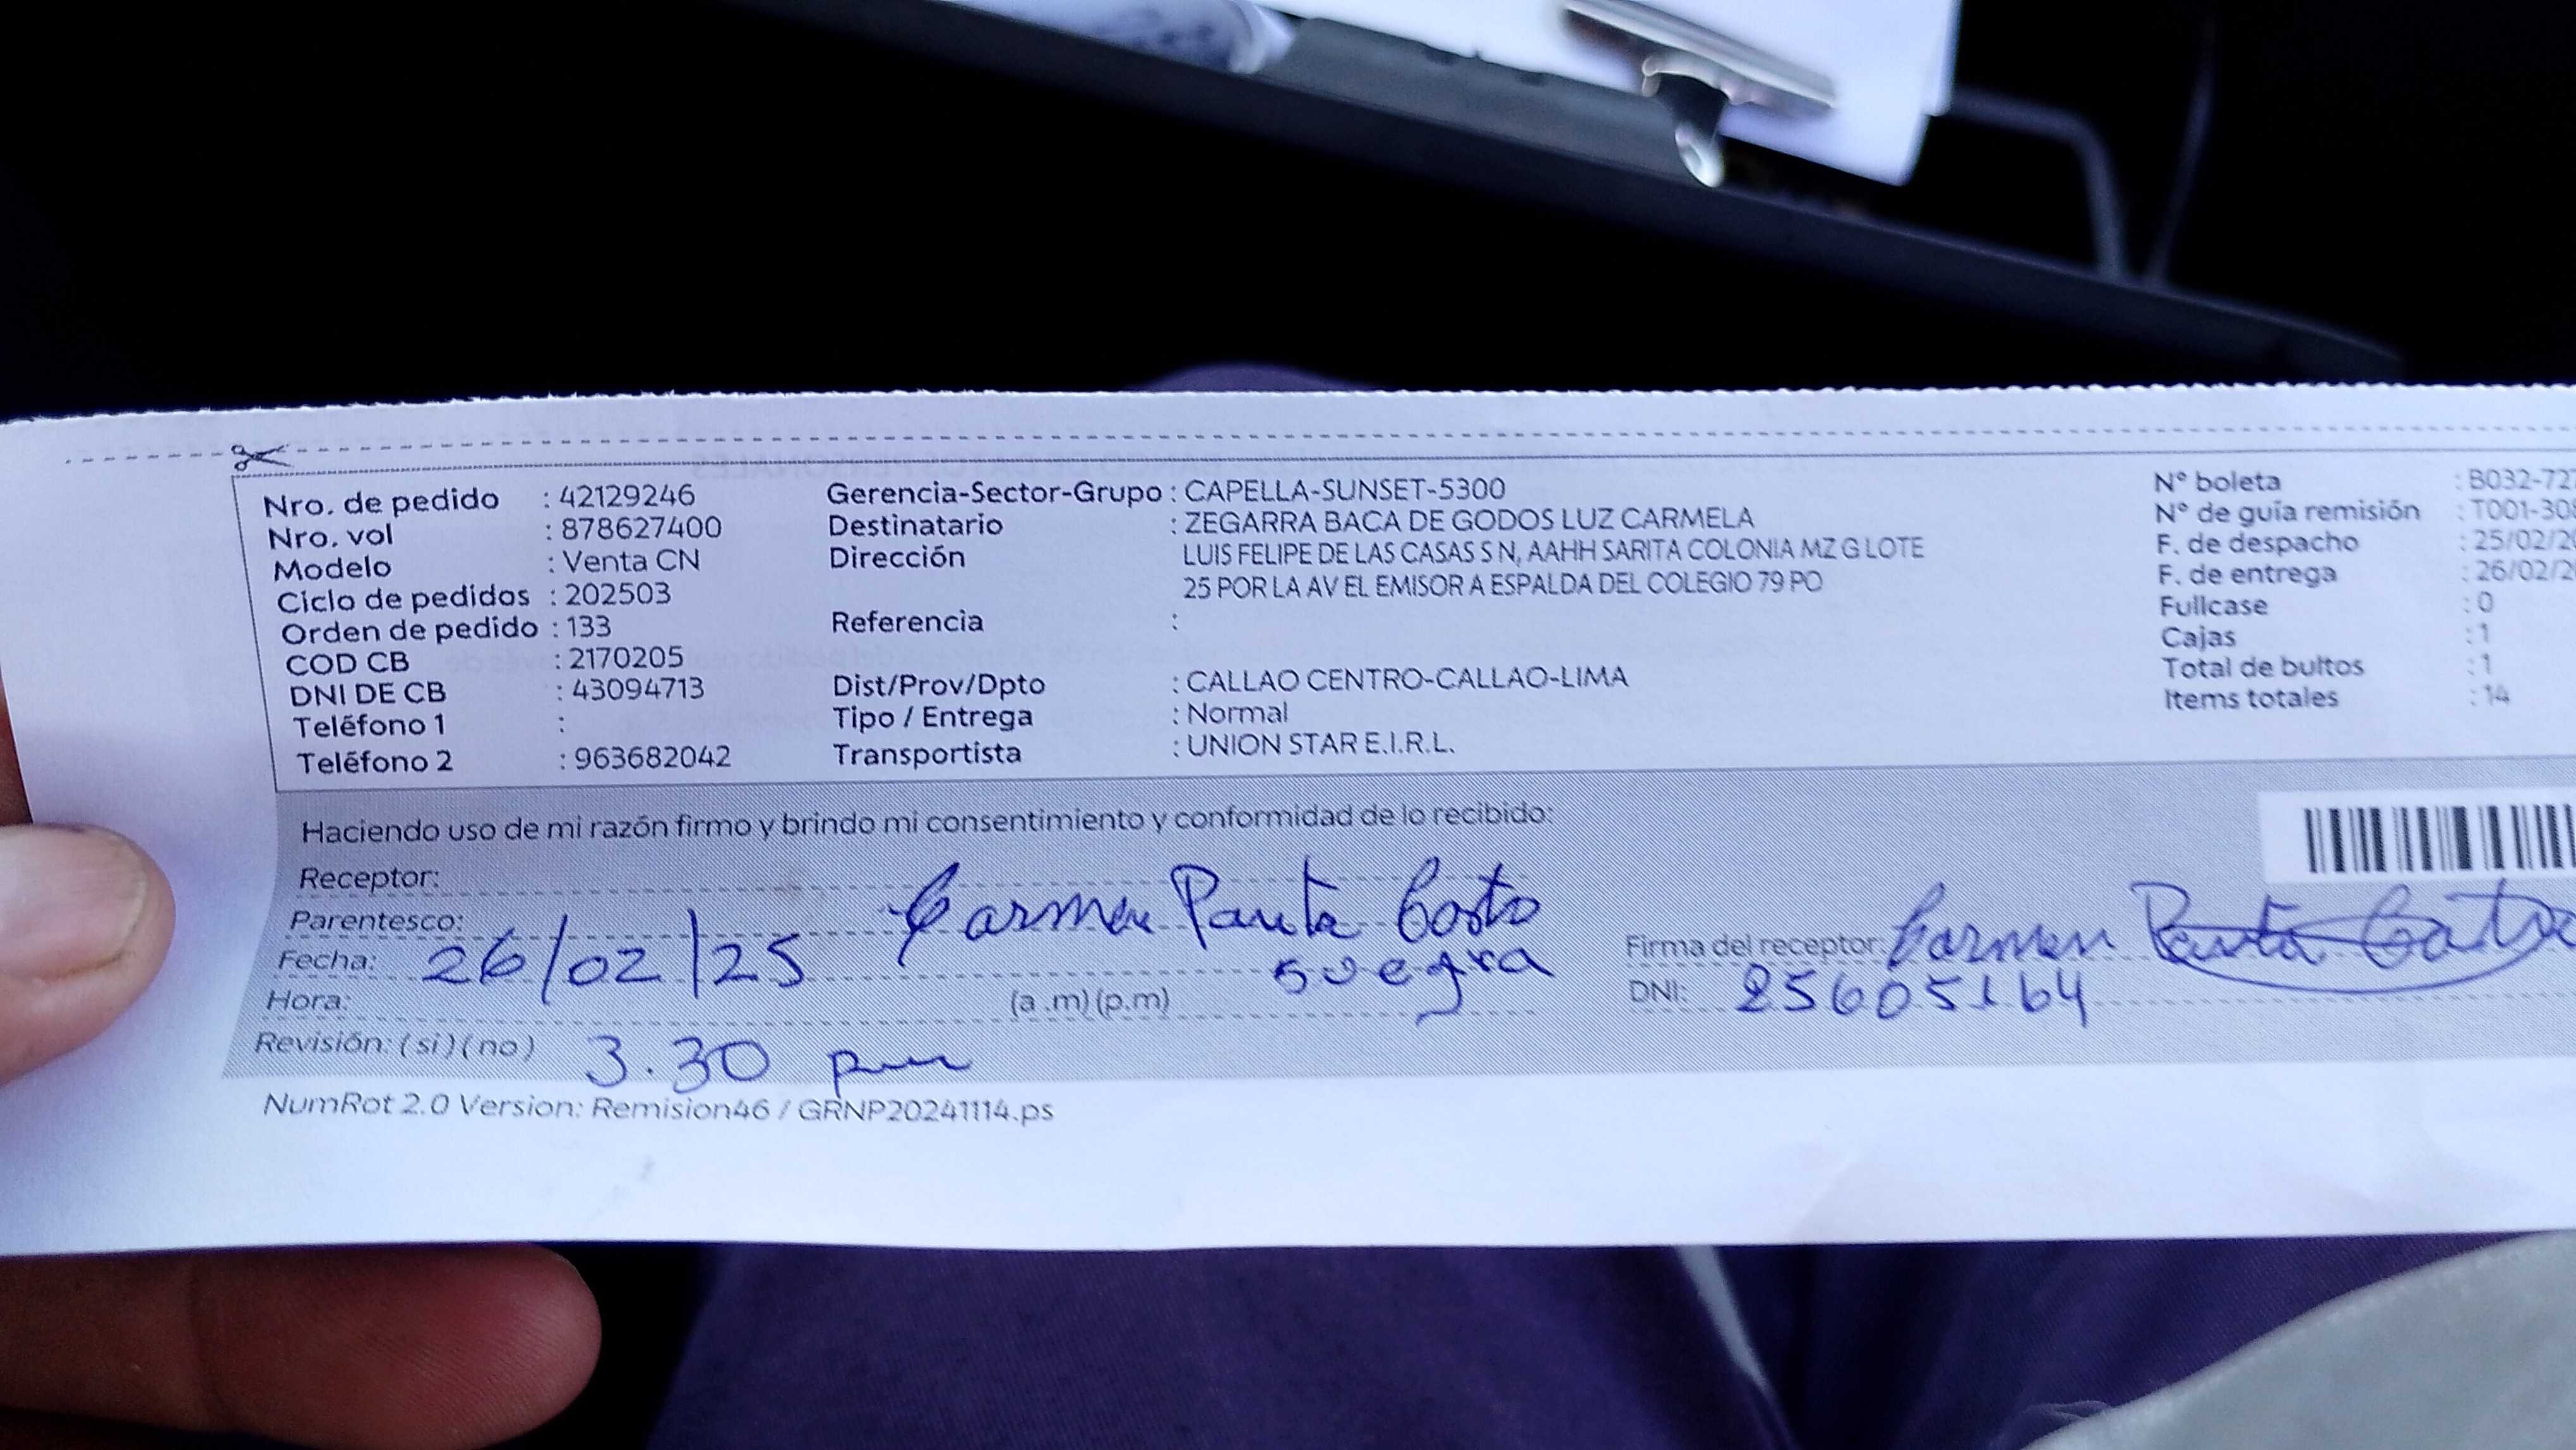 Nro. de pedido : 42129246
Nro. vol : 878627400
Modelo : Venta CN
Ciclo de pedidos : 202503
Orden de pedido : 133
COD CB : 2170205
DNI DE CB : 43094713
Teléfono 1 :
Teléfono 2 : 963682042
Gerencia-Sector-Grupo : CAPELLA-SUNSET-5300
Destinatario : ZEGARRA BACA DE GODOS LUZ CARMELA
Dirección LUIS FELIPE DE LAS CASAS S N, AAHH SARITA COLONIA MZ G LOTE
25 POR LA AV EL EMISOR A ESPALDA DEL COLEGIO 79 PO
Referencia :
Dist/Prov/Dpto : CALLAO CENTRO-CALLAO-LIMA
Tipo / Entrega : Normal
Transportista : UNION STAR E.I.R.L.
Nº boleta : B032-72
Nº de guía remisión : T001-308
F. de despacho : 25/02/20
F. de entrega : 26/02/2
Fullcase : 0
Cajas : 1
Total de bultos : 1
Items totales : 14
Haciendo uso de mi razón firmo y brindo mi consentimiento y conformidad de lo recibido:
Receptor: Carmen
Parentesco: suegra
Fecha: 26/02/25
Hora: (a .m) (p.m)
Revisión: (si) (no) 3.30 pm
Firma del receptor: Carmen
DNI: 25605164
NumRot 2.0 Version: Remision46 / GRNP20241114.ps